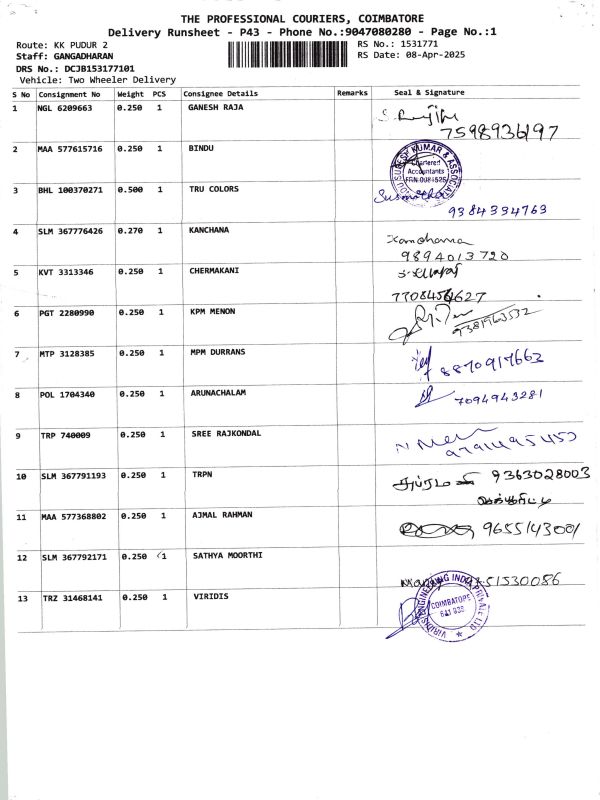 THE PROFESSIONAL COURIERS, COIMBATORE
Delivery Runsheet - P43 - Phone No.:9047080280 - Page No.:1
Route: KK PUDUR 2
RS No.: 1531771
Staff: GANGADHARAN
RS Date: 08-Apr-2025
DRS No.: DCJB153177101
Vehicle: Two Wheeler Delivery
S No Consignment No Weight PCS Consignee Details Remarks Seal & Signature
1 NGL 6209663 0.250 1 GANESH RAJA
7598936197
2 MAA 577615716 0.250 1 BINDU
Chartered
Accountants
3 BHL 100370271 0.500 1 TRU COLORS
9384334763
4 SLM 367776426 0.270 1 KANCHANA
Kanchana
9894013720
5 KVT 3313346 0.250 1 CHERMAKANI
6 PGT 2280990 0.250 1 KPM MENON
7 MTP 3128385 0.250 1 MPM DURRANS
8870917662
8 POL 1704340 0.250 1 ARUNACHALAM
7094943281
9 TRP 740009 0.250 1 SREE RAJKONDAL
10 SLM 367791193 0.250 1 TRPN
9363028003
11 MAA 577368802 0.250 1 AJMAL RAHMAN
9655143001
12 SLM 367792171 0.250 1 SATHYA MOORTHI
13 TRZ 31468141 0.250 1 VIRIDIS
VIRIDIS ENGINEERING INDIA PRIVATE LTD
COIMBATORE